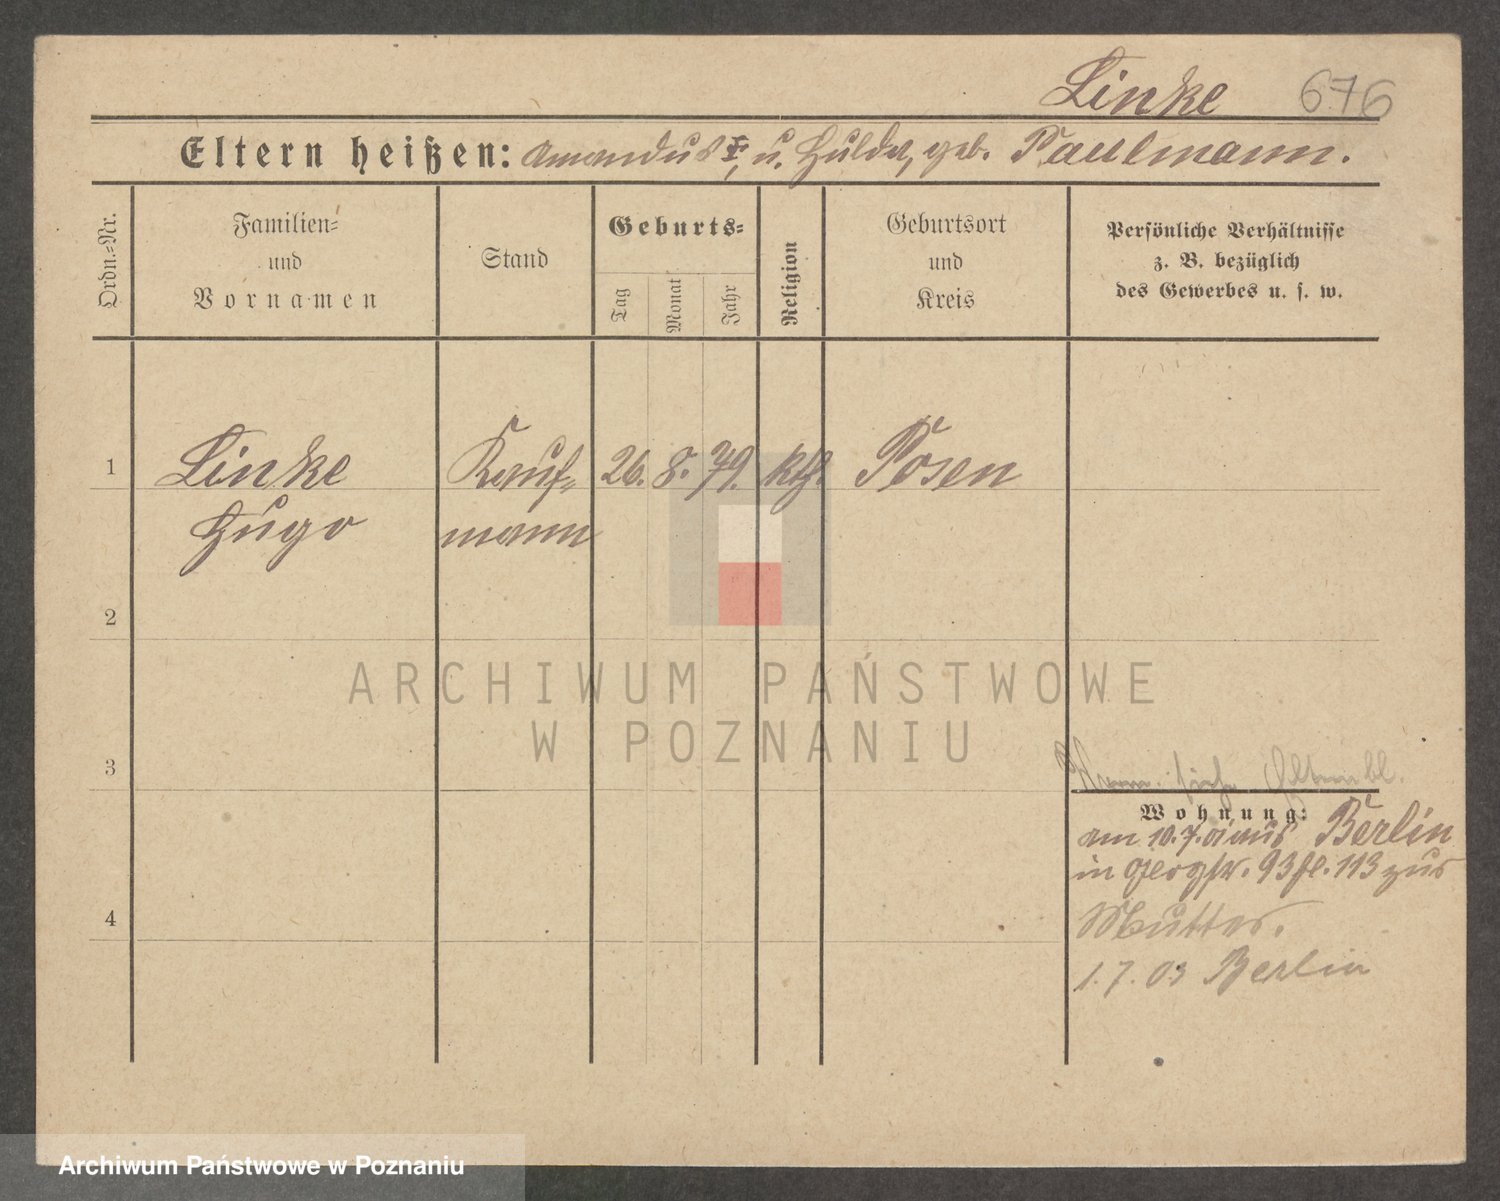 Linke 676
Eltern heißen: Amandus †, u. Hulda, geb. Paulmann.
Ordn.=Nr.
Familien=
und
Vornamen
Stand
Geburts=
Tag
Monat
Jahr
Religion
Geburtsort
und
Kreis
Persönliche Verhältnisse
z. B. bezüglich
des Gewerbes u. s. w.
1 Linke Kauf= 26. 8. 79. kth. Posen
Hugo mann
2
ARCHIWUM PAŃSTWOWE
W POZNANIU
3
Wohnung:
am 10.7. aus Berlin
in 93 113 zur
4
Mutter.
1.7.03 Berlin
Archiwum Państwowe w Poznaniu